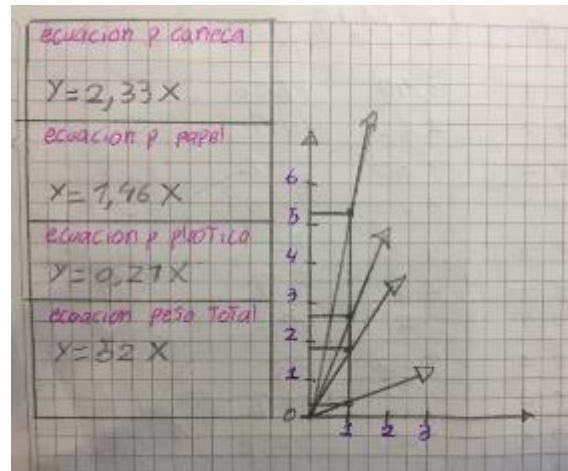 ecuacion p caneca
Y=2,33X
ecuacion p papel
Y=1,46X
ecuacion p plastico
Y=0,21X
ecuacion peso Total
Y=52 X
6
5
4
3
2
1
0
1 2 3